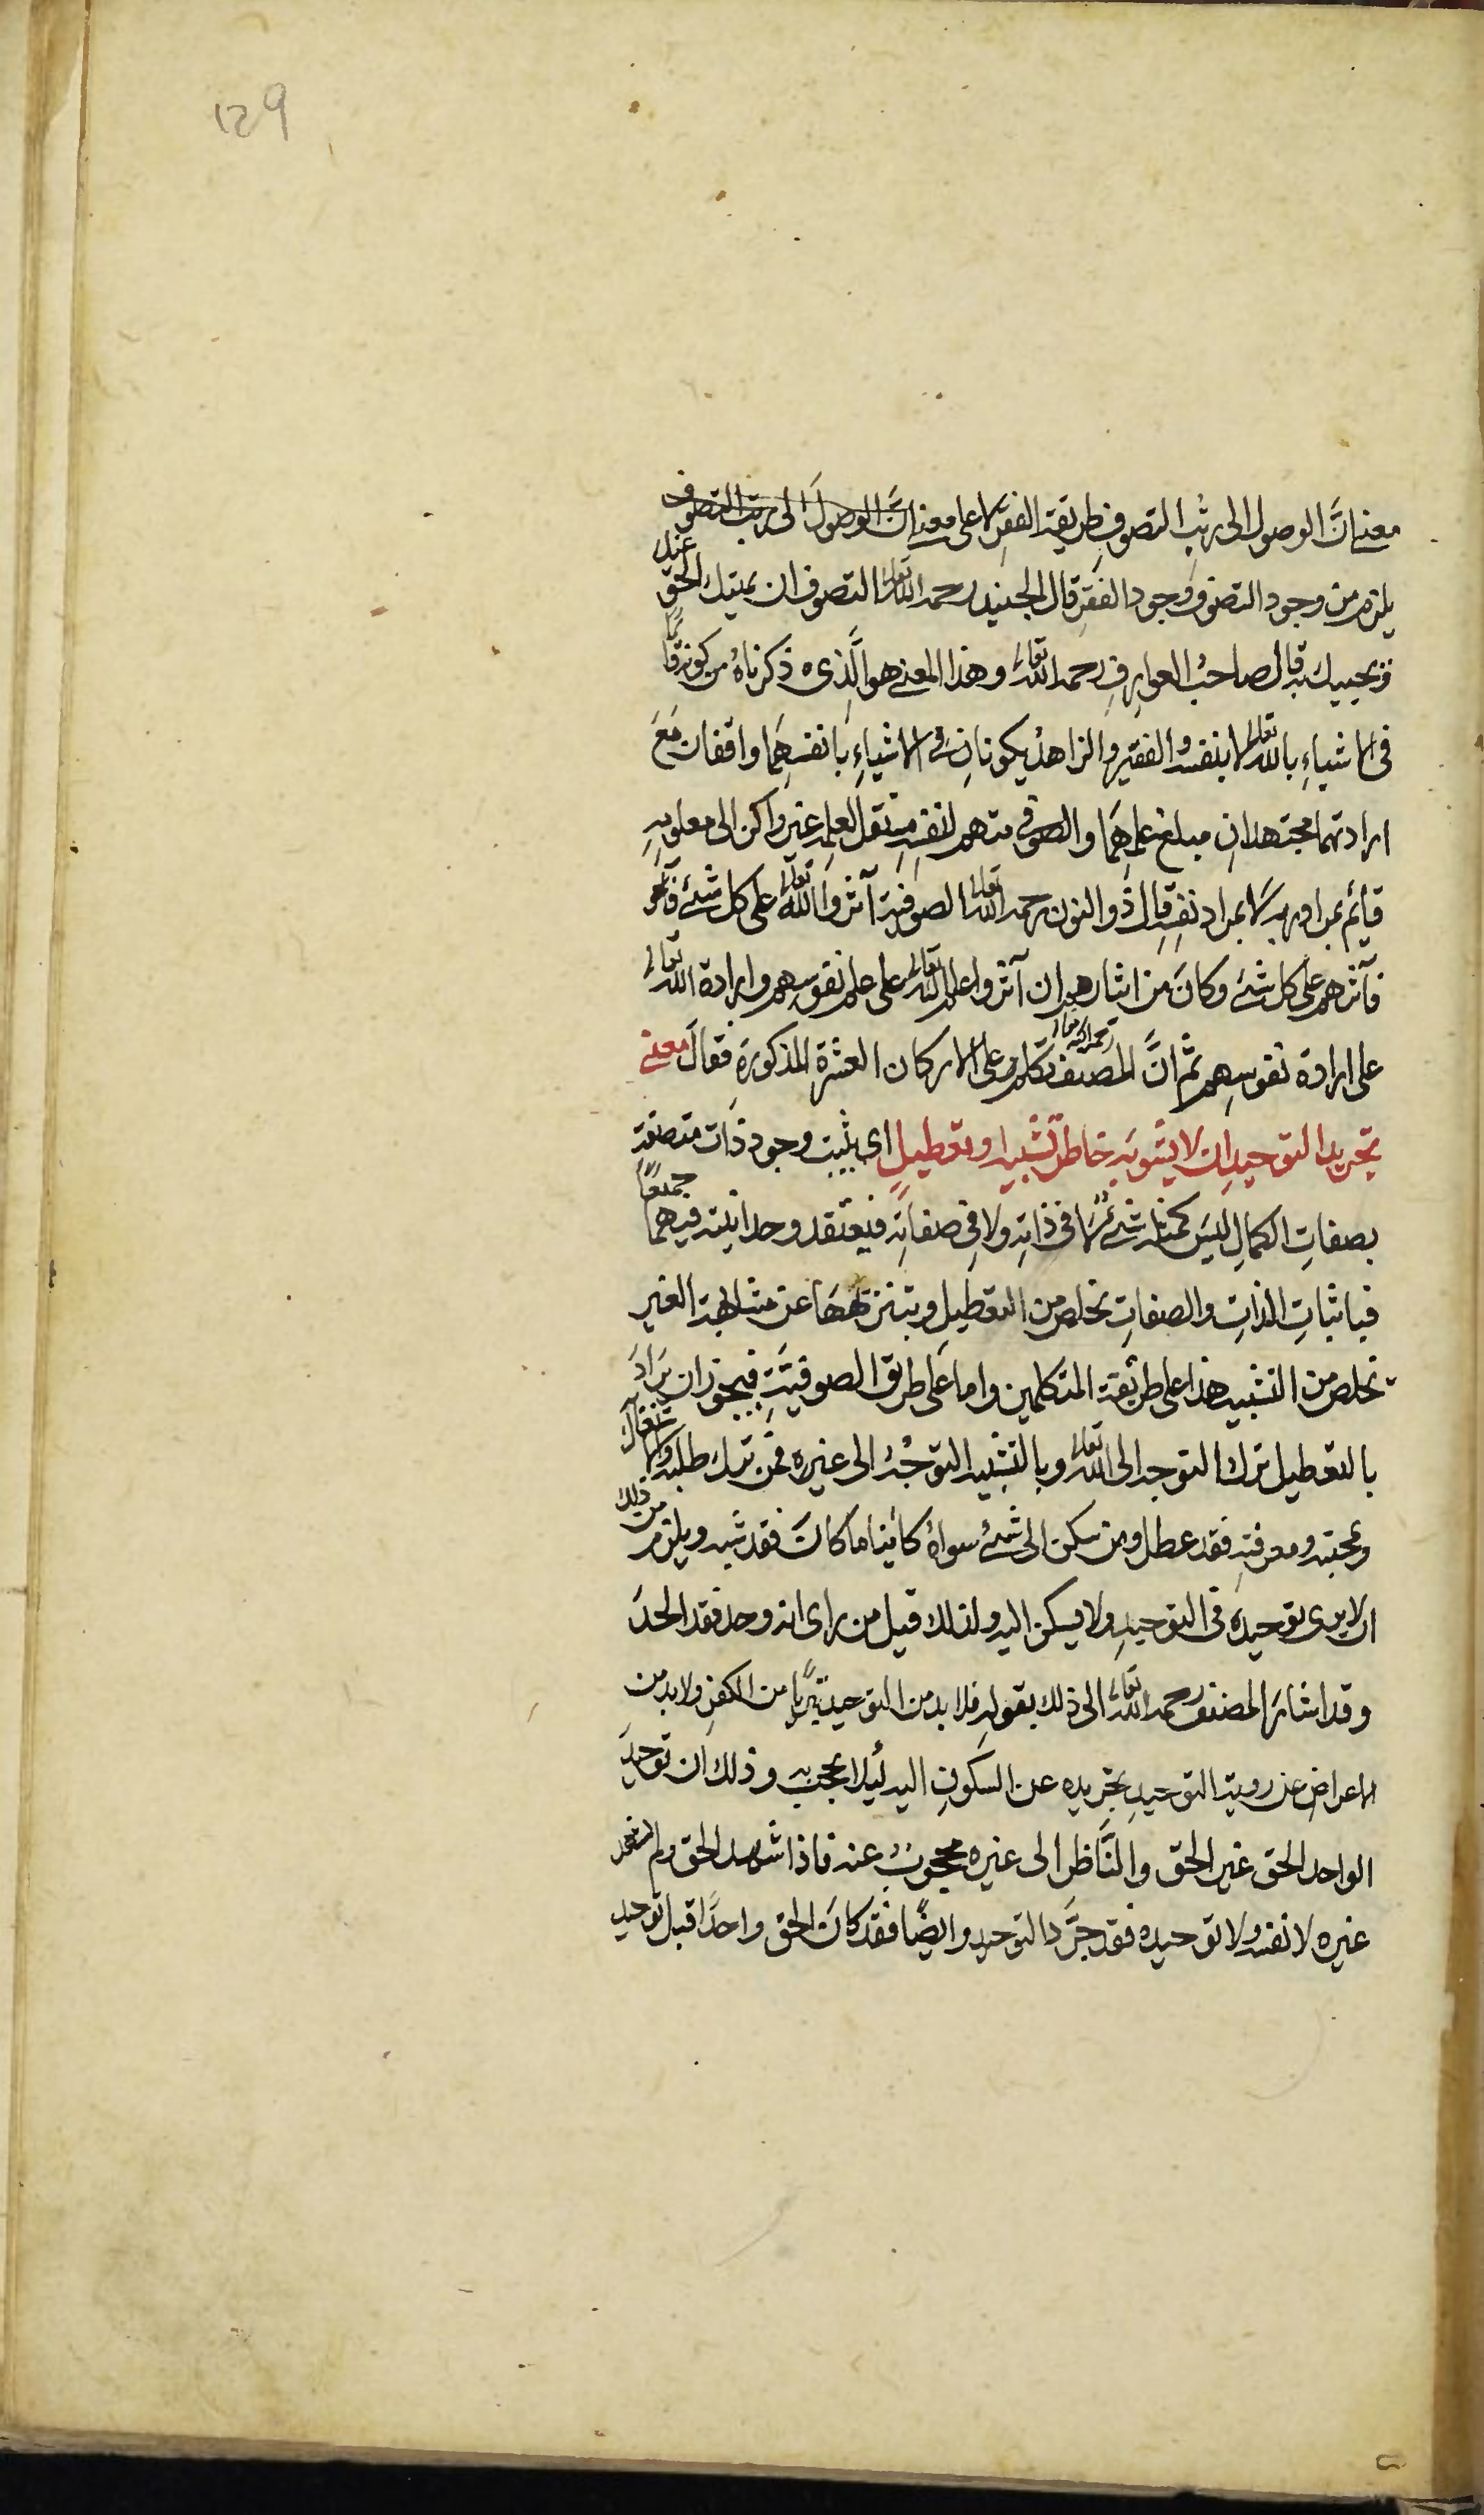 129
معنى انَّ الوصول الى رتب التصوف طريقة الفقر لا على معنى انَّ الوصولَ الى رتب التصوف
يلزم من وجود التصوف وجود الفقر قال الجنيد رحمه الله تعالى التصوف ان يميتك الحق عنك
ويحييك به قال صاحبُ العوارفِ رحمه الله تعالى وهذا المعنى هو الَّذى ذكرناهُ من كونه قائما
فى الاشياءِ بالله تعالى لا بنفسه والفقير والزاهد يكونانِ فى الاشياءِ بانفسهِمَا واقفان مَعَ
ارادتهما مجتهدانِ مبلغ علمهِمَا والصوفى متهم لنفسِهِ مستقل لعلمِه غير راكن الى معلومِهِ
قايمٌ بمراد ربه لا بمراد نفسِهِ قال ذو النون رحمه الله تعالى الصوفية آثروا الله تعالى على كل شئ فآثر
فآثرهم على كل شئ وكانَ من ايثارهم ان آثروا علم الله تعالى على علم نفوسِهِم وارادة الله تعالى
على ارادة نفوسِهِم ثمَّ انَّ المصنف رحمه الله تعالى تكلم على الاركان العشرة المذكورَةِ فقالَ معنى
تجريد التوحيدِ ان لا يشوبَه خاطرُ تشبيه او تعطيلٍ اى يثبت وجود ذات متصفة
بصفاتِ الكمالِ ليسَ كمثله شئ لا فى ذاته ولا فى صفاته فيعتقد وحدانيته فيهما جميعًا
فباثباتِ الذاتِ والصفاتِ تخلص من التعطيلِ وبتنزيههَا عن مشابهة الغير
تخلص من التشبيه هذا على طريقة المتكلمين واما عَلى طريق الصوفيَّةِ فيجوز ان يرادَ
بالتعطيل ترك التوجه الى الله تعالى وبالتشبيه التوجُّه الى غيره فمن ترك طلبه والاشتغال
بمحبته ومعرفتِهِ فقد عطل ومن سكن الى شئ سواهُ كائنا ما كانَ فقد شبه ويلزم من ذلك
ان لا يرى توحيدَه فى التوحيدِ ولا يسكن اليه ولذلك قيل من راى انه وحد فقد الحدَ
وقد اشارَ المصنف رحمه الله تعالى الى ذلك بقولِهِ فلا بد من التوحيد تبرّيًا من الكفرِ ولا بد من
الاعراضِ عن روية التوحيدِ بتجريده عن السكونِ اليه ليلا يحجب به وذلك ان توحيدَ
الواحد الحق غير الحق والنَّاظر الى غيره محجوبٌ عنه فاذا شهد الحق ولم يشهد
غيره لا نفسه ولا توحيده فقد جرَّد التوحيد وايضًا فقد كانَ الحق واحدًا قبل توحيد